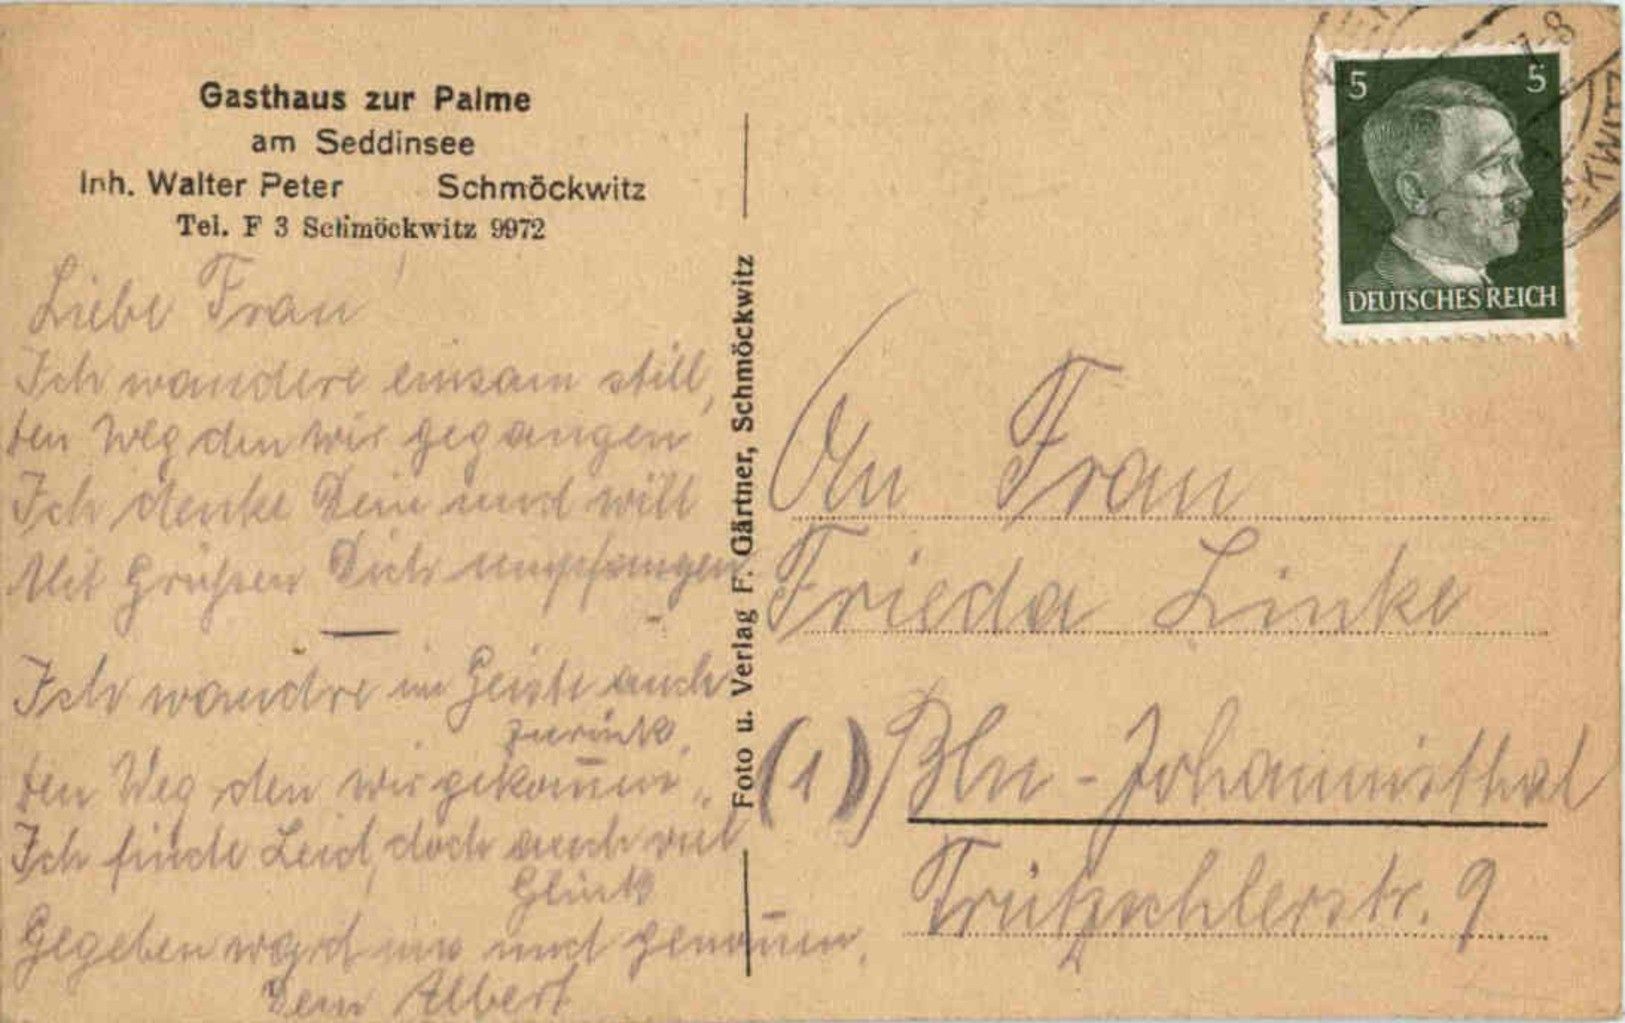 Gasthaus zur Palme
am Seddinsee
Inh. Walter Peter Schmöckwitz
Tel. F 3 Schmöckwitz 9972
Liebe Frau!
Ich wandere einsam still,
den Weg den wir gegangen
Ich denke Dein und will
Mit Grüßen Dich umpfangen
Ich wandre im Geiste auch
zurück,
den Weg den wir gekom̅en,
Ich finde Leid, doch auch viel
Glück
Gegeben ward uns und genom̅en.
Dein Albert
Foto u. Verlag F. Gärtner, Schmöckwitz
5 5
DEUTSCHES REICH
7-8
An Frau
Frieda Linke
(1) Bln - Johannisthal
Trützschlerstr. 9